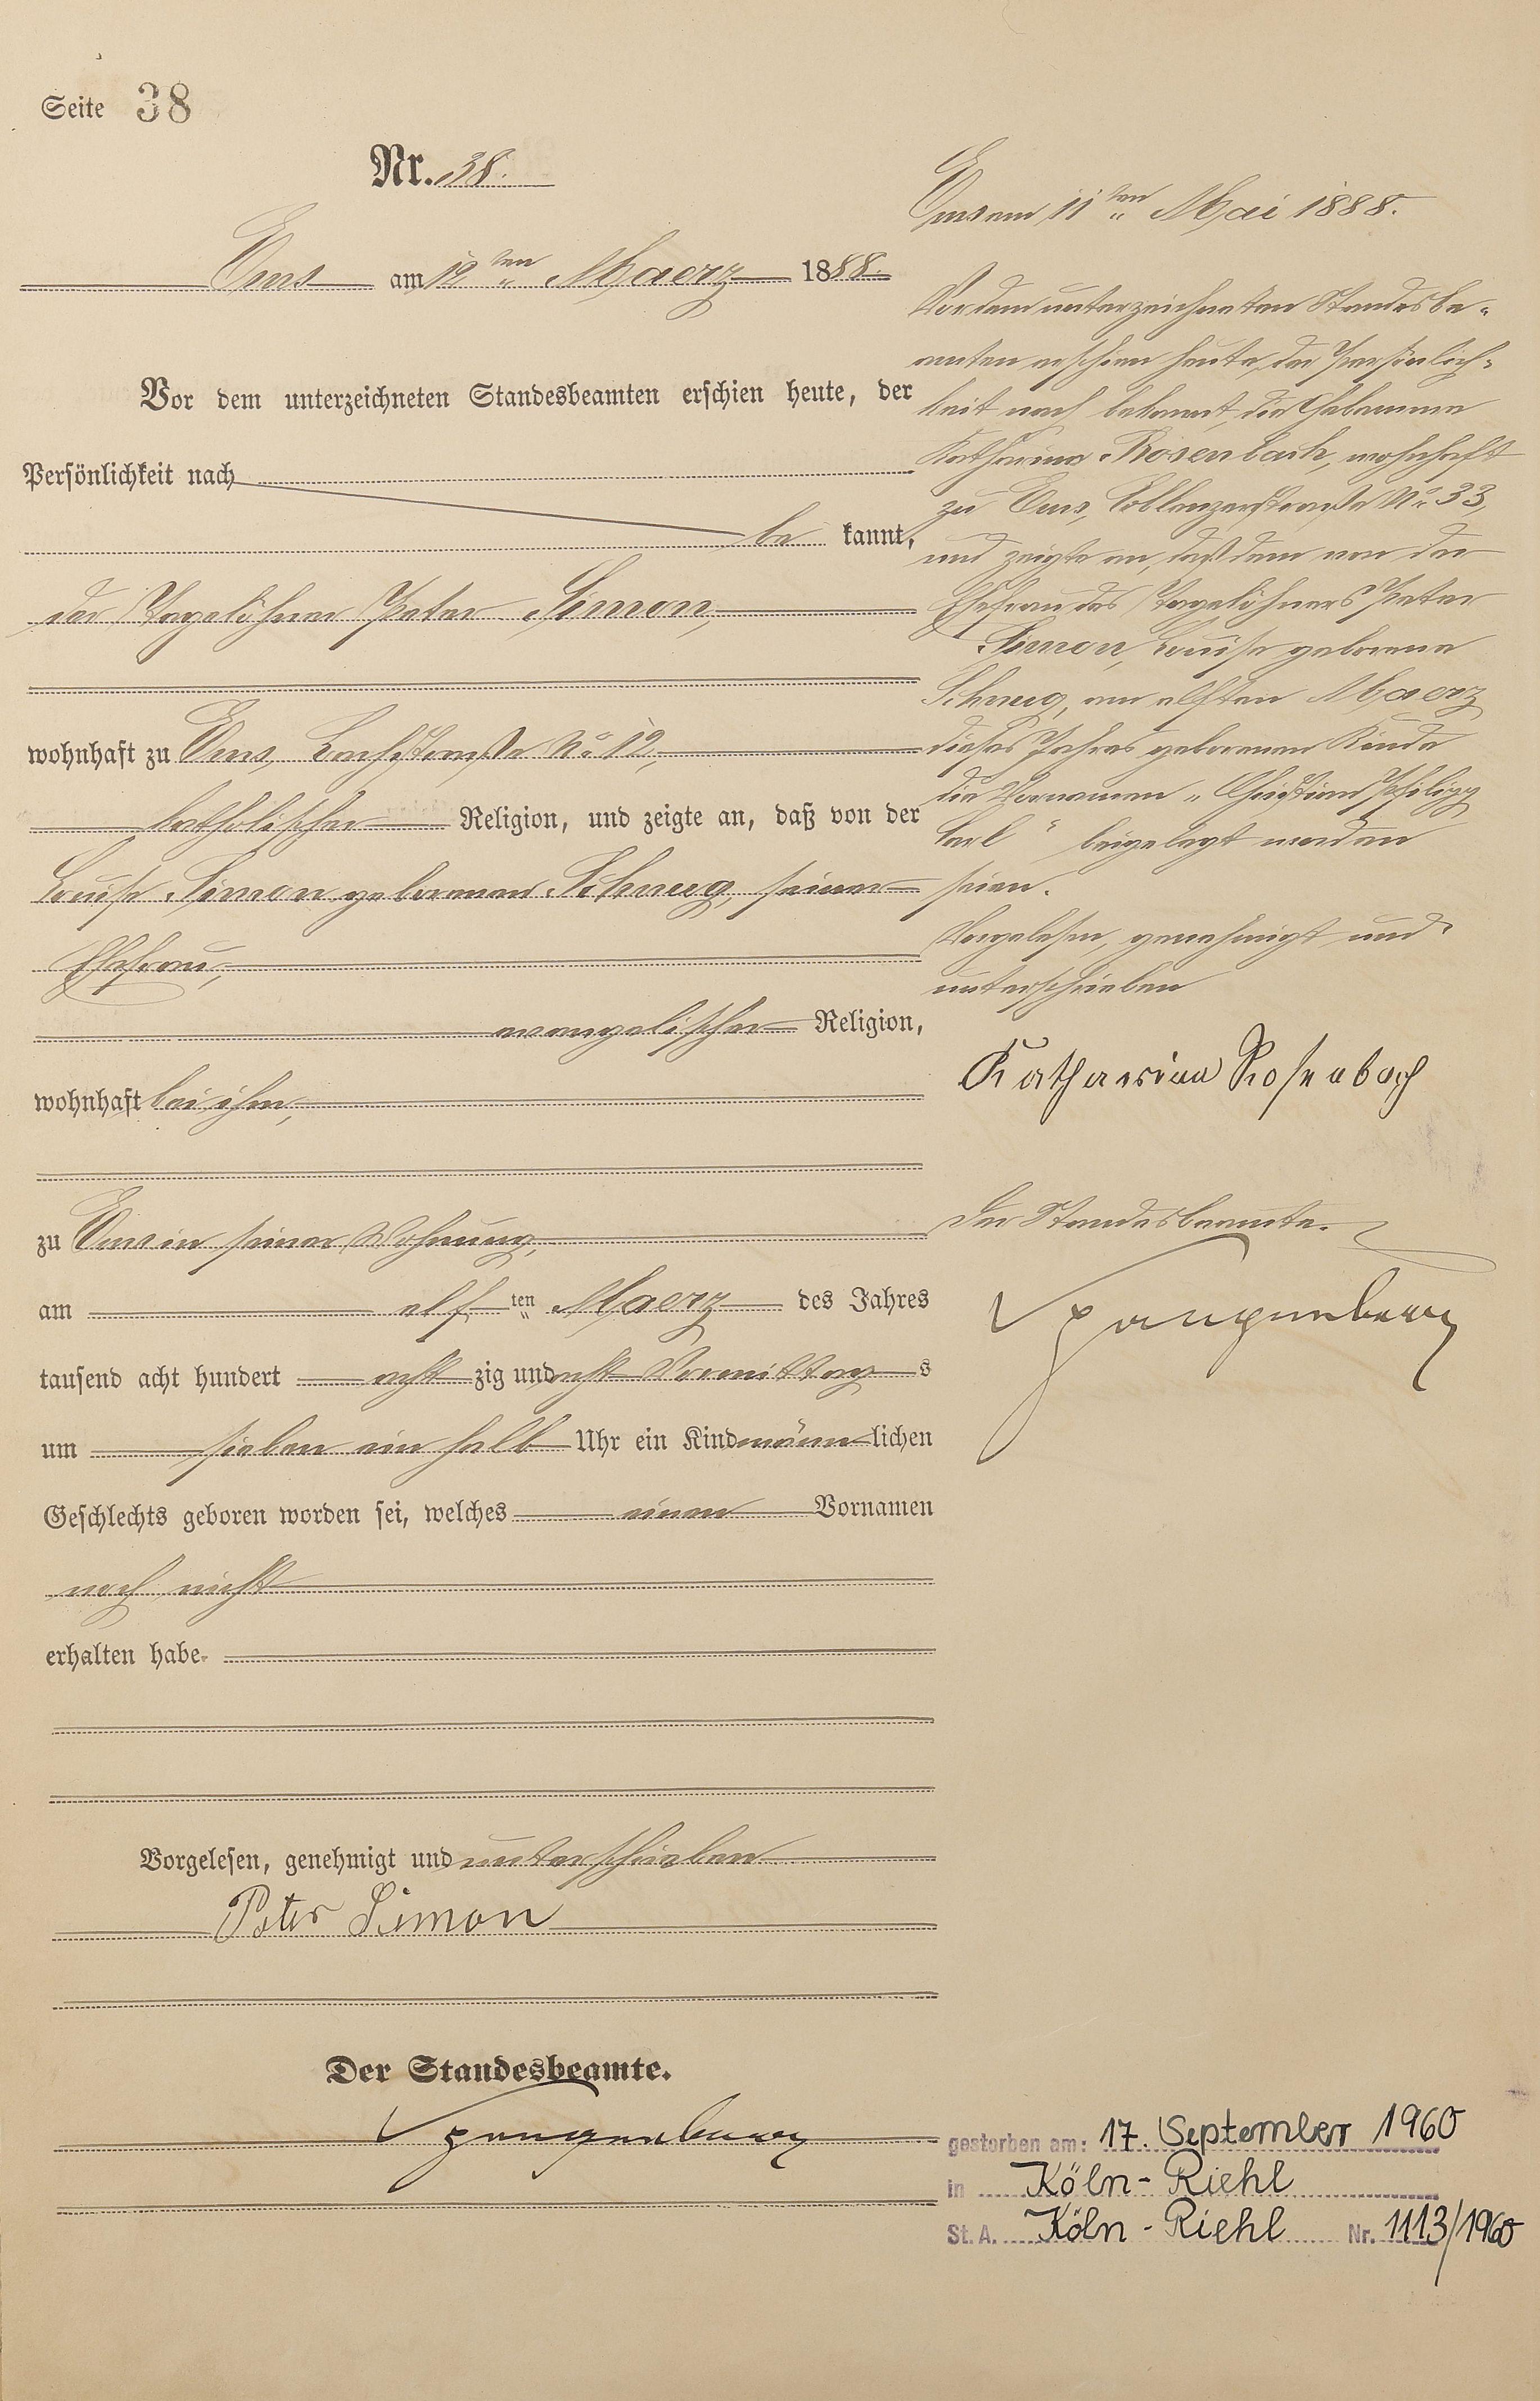 Seite 38
Nr. 38.
Ems am 12ten Maerz 1888.
Vor dem unterzeichneten Standesbeamten erschien heute, der
Persönlichkeit nach
be kannt,
der Tagelöhner Peter Simon,
wohnhaft zu Ems, Bachstraße No 12,
katholischer Religion, und zeigte an, daß von der
Louise Simon geborenen Schnug, seiner
Ehefrau,
evangelischer Religion,
wohnhaft bei ihm,
zu Ems in seiner Wohnung,
am elf ten Maerz des Jahres
tausend acht hundert acht zig und acht Vormittag s
um sieben ein halb Uhr ein Kind männ lichen
Geschlechts geboren worden sei, welches einen Vornamen
noch nicht
erhalten habe.
Vorgelesen, genehmigt und unterschrieben
Peter Simon
Der Standesbeamte.
Ems am 11ten Mai 1888.
Vor dem unterzeichneten Standesbe-
amten erschien heute, der Persönlich-
keit nach bekannt, die Hebamme
Katharina Rosenbach, wohnhaft
zu Ems, Coblenzerstraße No 33,
und zeigte an, daß dem von der
Ehefrau des Tagelöhners Peter
Simon, Louise geborene
Schnug, am elften Maerz
dieses Jahres geborenen Kinde
die Vornamen „Christian Philipp
Carl“ beigelegt worden
seien.
Vorgelesen, genehmigt und
unterschrieben
Katharina Rosenbach
Der Standesbeamte.
gestorben am: 17. September 1960
in Köln-Riehl
St. A. Köln-Riehl Nr. 1113/1960